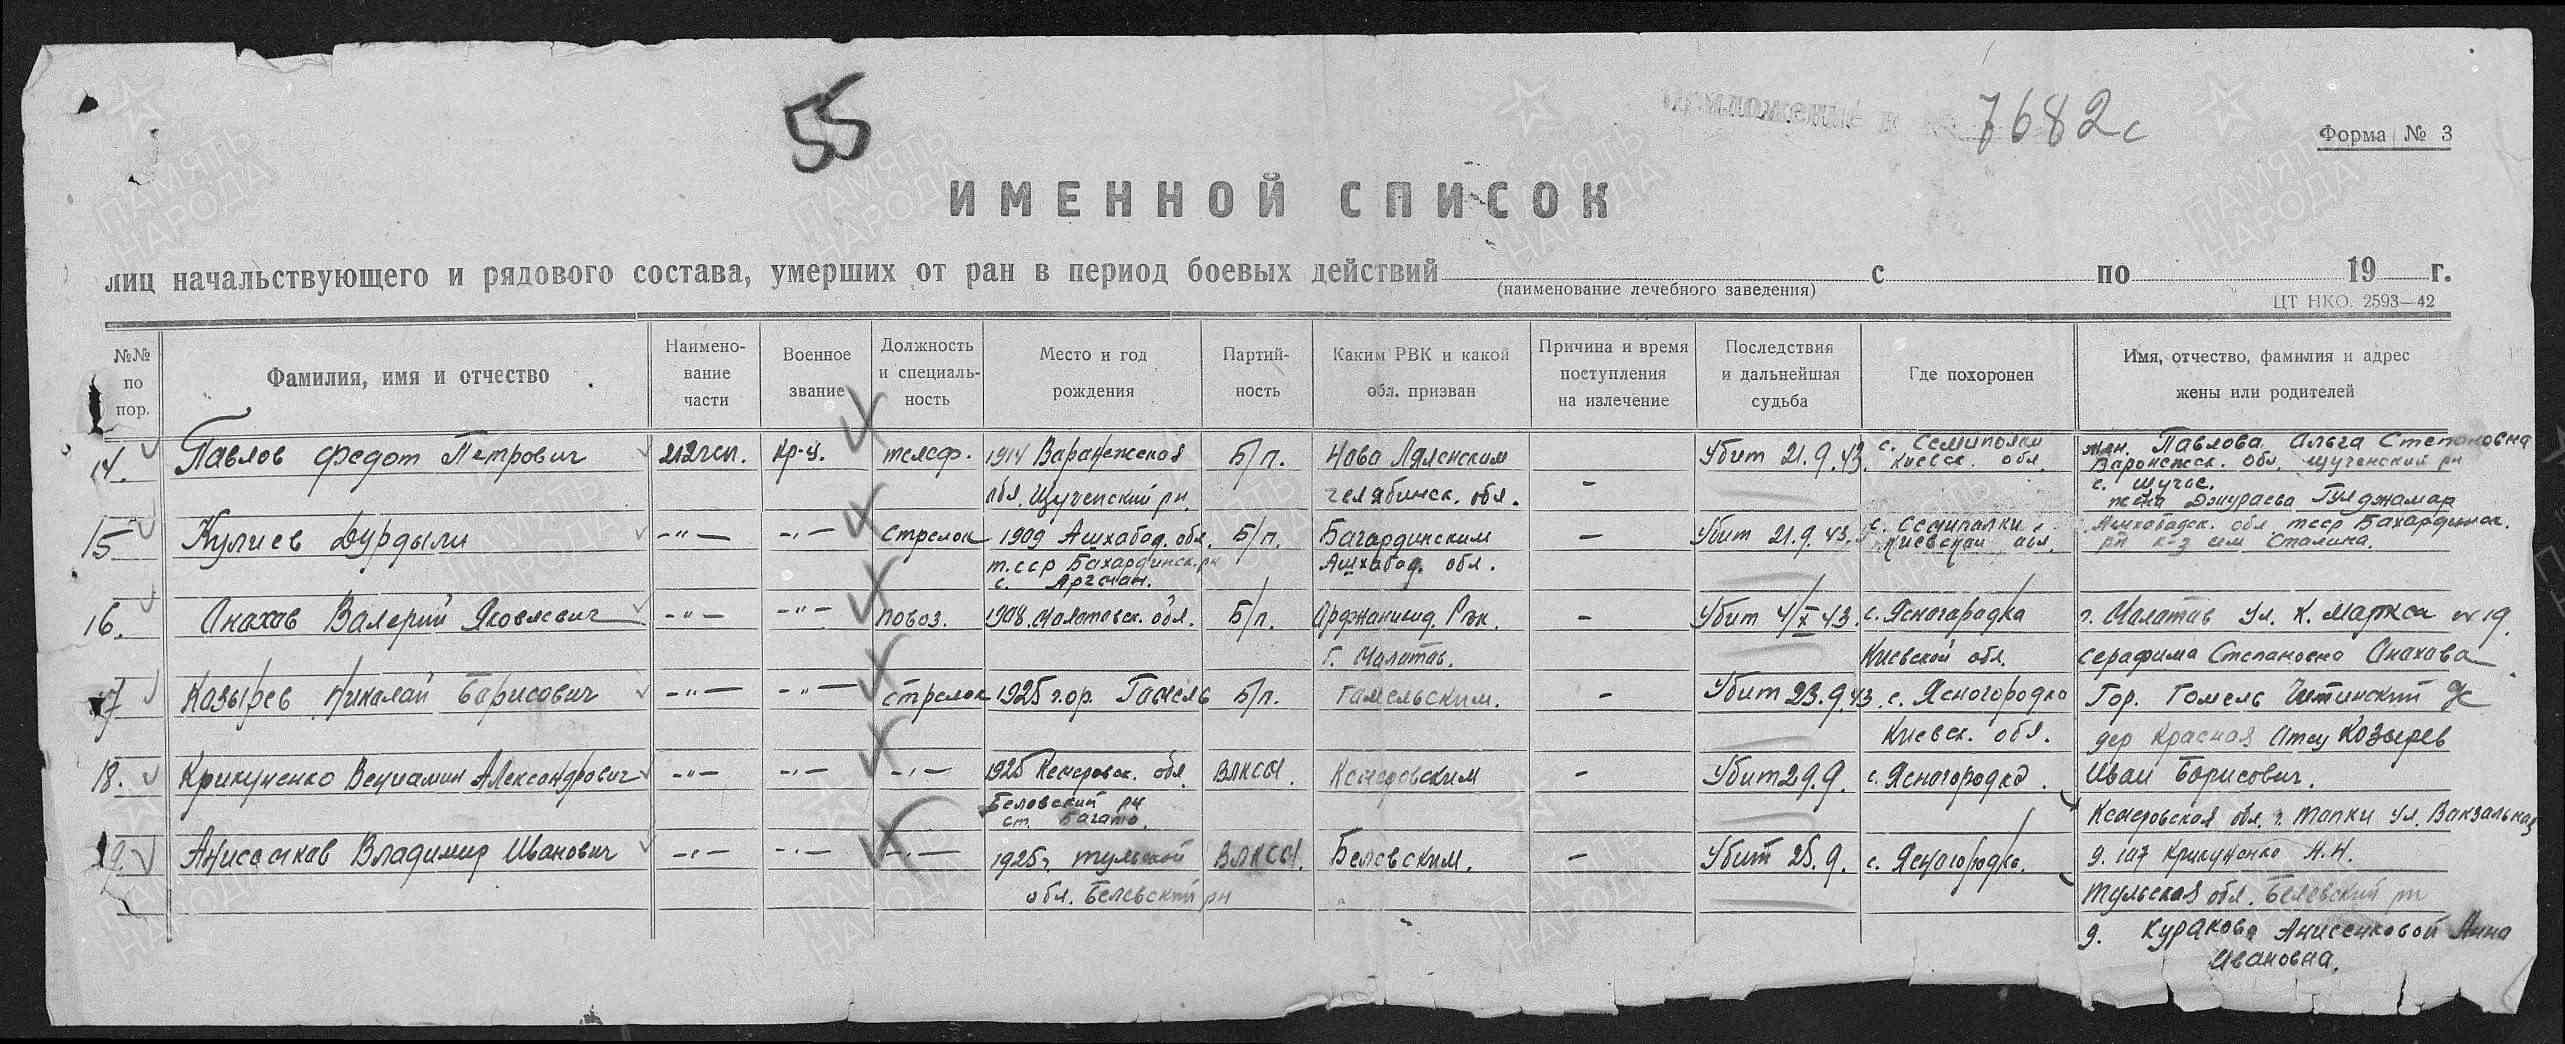 55
7682с
Форма № 3
ИМЕННОЙ СПИСОК
лиц начальствующего и рядового состава, умерших от ран в период боевых действий с по 19 г.
(наименование лечебного заведения)
ЦТ НКО. 2593—42
№№ по пор.
Фамилия, имя и отчество
Наименование части
Военное звание
Должность и специальность
Место и год рождения
Партийность
Каким РВК и какой обл. призван
Причина и время поступления на излечение
Последствия и дальнейшая судьба
Где похоронен
Имя, отчество, фамилия и адрес жены или родителей
14. Павлов Федот Петрович 212 гсп. кр-ц. телеф. 1914 Варанежская Б/п. Ново Ляленским Убит 21.9.43. с. Семиполки жен. Павлова Ольга Степановна
обл. Щученский рн. Челябинск. обл. - Киевск. обл. Варонежск. обл. щученский рн
с. щучье.
жена Джураева Гулджамар
15 Кулиев Дурдыли -"- -"- стрелок 1909 Ашхабад. обл. Б/п. Багардинским - Убит 21.9.43. с. Семиполки Ашхабадск. обл. тсср Бахардинск.
т.сср Бахардинск. рн Ашхабад. обл. Киевской обл. рн к-з им Сталина.
с. Аргман.
16. Онахов Валерий Яковлевич -"- -"- повоз. 1908. Молотовск. обл. Б/п. Орджоникид. Рвк. - Убит 4/X 43. с. Ясногородка г. Молотов ул. К. Маркса № 19.
г. Молотов. Киевской обл. Серафима Степановна Онахова
17 Козырев Николай Барисович -"- -"- стрелок 1925 гор. Гомель Б/п. Гомельским. - Убит 23.9.43. с. Ясногородка Гор. Гомель Читинский
Киевск. обл. дер Красная Отец Козырев
18. Крикуненко Вениамин Александрович -"- -"- -"- 1925 Кемеровск. обл. ВЛКСМ. Кемеровским - Убит 29.9. с. Ясногородка. Иван Борисович.
Беловский рн Кемеровская обл. г. Топки ул. Вакзальная
ст. Бачаты.
19. Анисенков Владимир Иванович -"- -"- -"- 1925г. Тульской ВЛКСМ. Белевским. - Убит 25.9. с. Ясногородка. д. 107 Крикуненко Н.Н.
обл. Белевский рн Тульская обл. Белевский рн
д. Куракова Анисенковой Анна
Ивановна.
ПАМЯТЬ НАРОДА